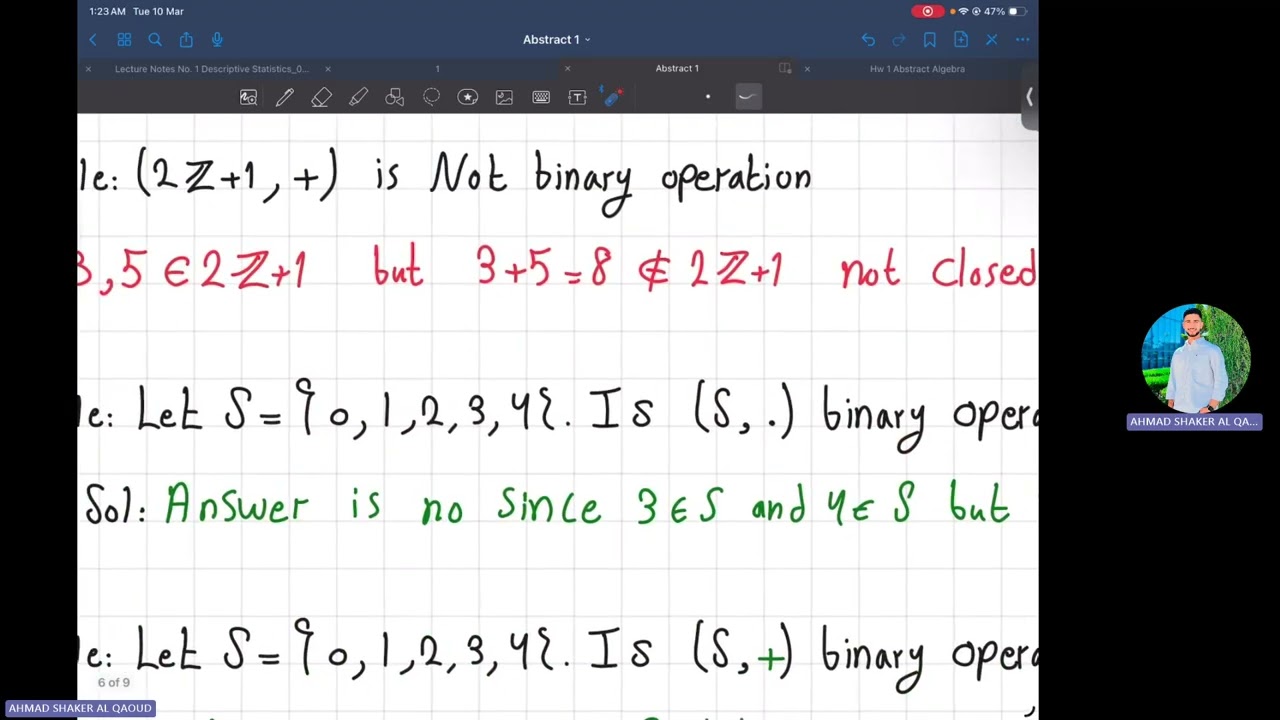 1:23 AM Tue 10 Mar
47%
Abstract 1
Lecture Notes No. 1 Descriptive Statistics_0...
1
Abstract 1
Hw 1 Abstract Algebra
le: (2ℤ+1, +) is Not binary operation
3, 5 ∈ 2ℤ+1 but 3+5=8 ∉ 2ℤ+1 not closed
e: Let S = {0, 1, 2, 3, 4}. Is (S, .) binary opera
Sol: Answer is no since 3 ∈ S and 4 ∈ S but
le: Let S = {0, 1, 2, 3, 4}. Is (S, +) binary opera
6 of 9
AHMAD SHAKER AL QA...
AHMAD SHAKER AL QAOUD